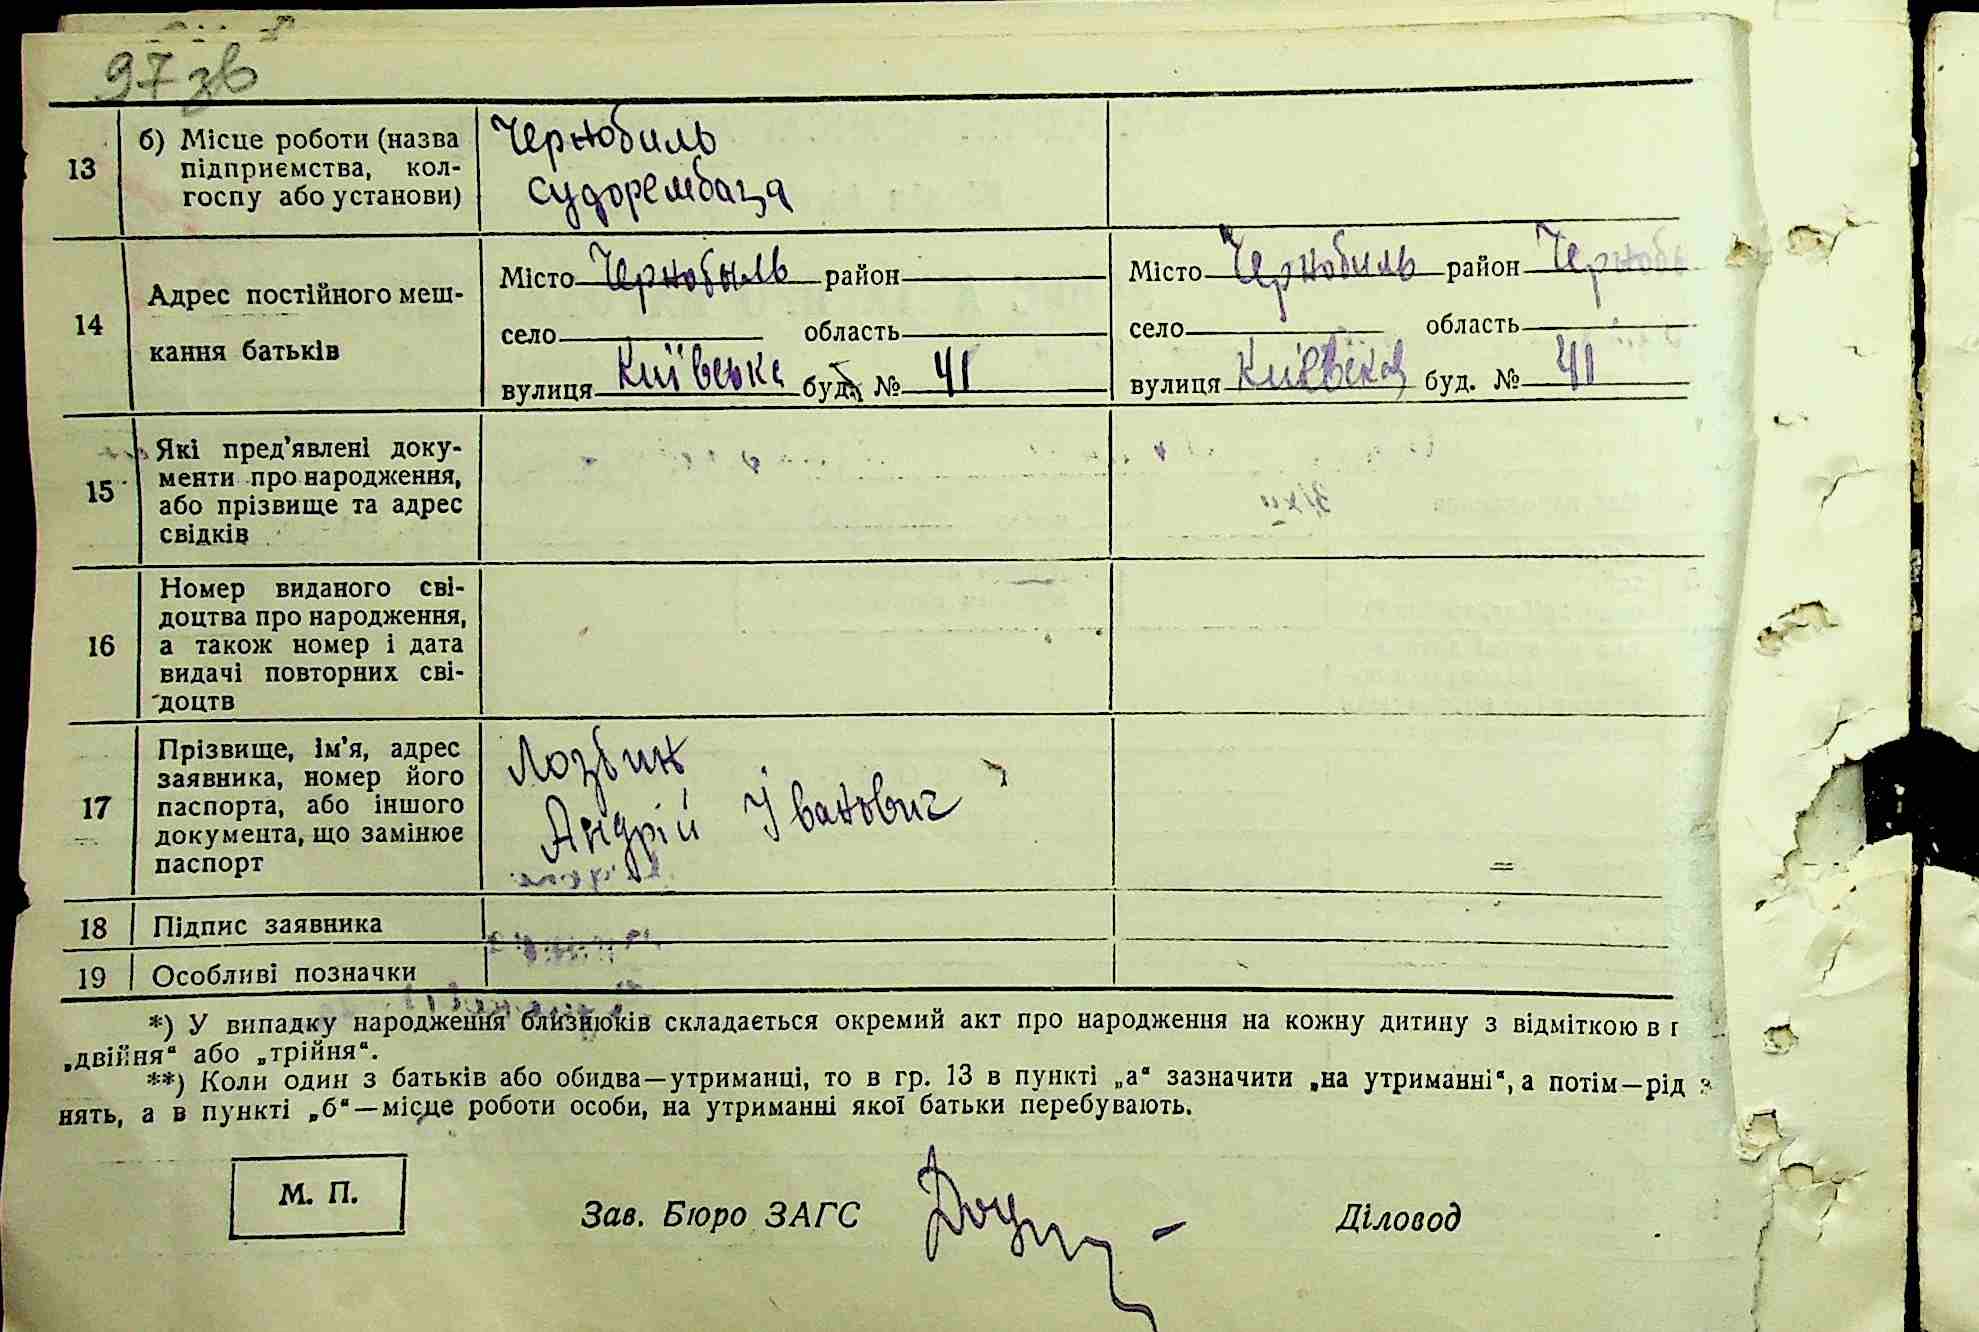 97 зв
13
б) Місце роботи (назва
підприємства, кол-
госпу або установи)
Чернобиль
судорембаза
14
Адрес постійного меш-
кання батьків
Місто Чернобыль район
село область
вулиця Київська буд. № 41
Місто Чернобиль район Чернобы
село область
вулиця Київская буд. № 41
15
Які пред'явлені доку-
менти про народження,
або прізвище та адрес
свідків
16
Номер виданого сві-
доцтва про народження,
а також номер і дата
видачі повторних сві-
доцтв
17
Прізвище, ім'я, адрес
заявника, номер його
паспорта, або іншого
документа, що замінює
паспорт
Лозбин
Андрій Іванович
18 Підпис заявника
19 Особливі позначки
*) У випадку народження близнюків складається окремий акт про народження на кожну дитину з відміткою в г
„двійня“ або „трійня“.
**) Коли один з батьків або обидва—утриманці, то в гр. 13 в пункті „а“ зазначити „на утриманні“, а потім—рід з
нять, а в пункті „б“—місце роботи особи, на утриманні якої батьки перебувають.
М. П.
Зав. Бюро ЗАГС
Діловод